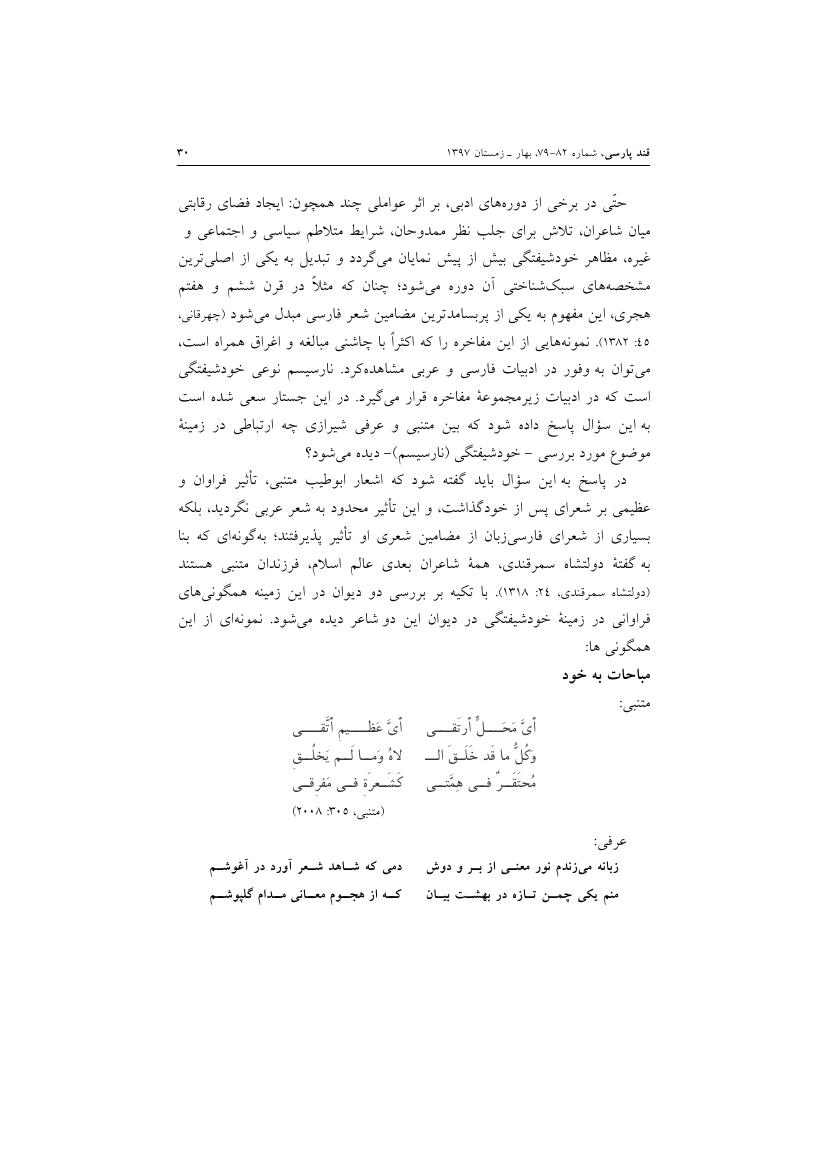 قند پارسی، شماره ۸۲-۷۹، بهار ـ زمستان ۱۳۹۷ ۳۰
حتّی در برخی از دوره‌های ادبی، بر اثر عواملی چند همچون: ایجاد فضای رقابتی
میان شاعران، تلاش برای جلب نظر ممدوحان، شرایط متلاطم سیاسی و اجتماعی و
غیره، مظاهر خودشیفتگی بیش از پیش نمایان می‌گردد و تبدیل به یکی از اصلی‌ترین
مشخصه‌های سبک‌شناختی آن دوره می‌شود؛ چنان که مثلاً در قرن ششم و هفتم
هجری، این مفهوم به یکی از پربسامدترین مضامین شعر فارسی مبدل می‌شود (چهرقانی،
۴۵: ۱۳۸۲). نمونه‌هایی از این مفاخره را که اکثراً با چاشنی مبالغه و اغراق همراه است،
می‌توان به وفور در ادبیات فارسی و عربی مشاهده‌کرد. نارسیسم نوعی خودشیفتگی
است که در ادبیات زیرمجموعۀ مفاخره قرار می‌گیرد. در این جستار سعی شده است
به این سؤال پاسخ داده شود که بین متنبی و عرفی شیرازی چه ارتباطی در زمینۀ
موضوع مورد بررسی - خودشیفتگی (نارسیسم)- دیده می‌شود؟
در پاسخ به این سؤال باید گفته شود که اشعار ابوطیب متنبی، تأثیر فراوان و
عظیمی بر شعرای پس از خودگذاشت، و این تأثیر محدود به شعر عربی نگردید، بلکه
بسیاری از شعرای فارسی‌زبان از مضامین شعری او تأثیر پذیرفتند؛ به‌گونه‌ای که بنا
به گفتۀ دولتشاه سمرقندی، همۀ شاعران بعدی عالم اسلام، فرزندان متنبی هستند
(دولتشاه سمرقندی، ۲۴: ۱۳۱۸). با تکیه بر بررسی دو دیوان در این زمینه همگونی‌های
فراوانی در زمینۀ خودشیفتگی در دیوان این دو شاعر دیده می‌شود. نمونه‌ای از این
همگونی ها:
مباحات به خود
متنبی:
أیَّ مَحَـــلٍّ أرتَقـــی أیَّ عَظـــیمٍ أتَّقـــی
وَکُلُّ ما قَد خَلَـقَ الـــ لاهُ وَمـا لَـم یَخلُـقِ
مُحتَقَـرٌ فـی هِمَّتـی کَشَـعرَةٍ فـی مَفرِقـی
(متنبی، ۳۰۵: ۲۰۰۸)
عرفی:
زبانه می‌زندم نور معنـی از بـر و دوش دمی که شـاهد شـعر آورد در آغوشـم
منم یکی چمـن تـازه در بهشـت بیـان کـه از هجـوم معـانی مـدام گلپوشـم